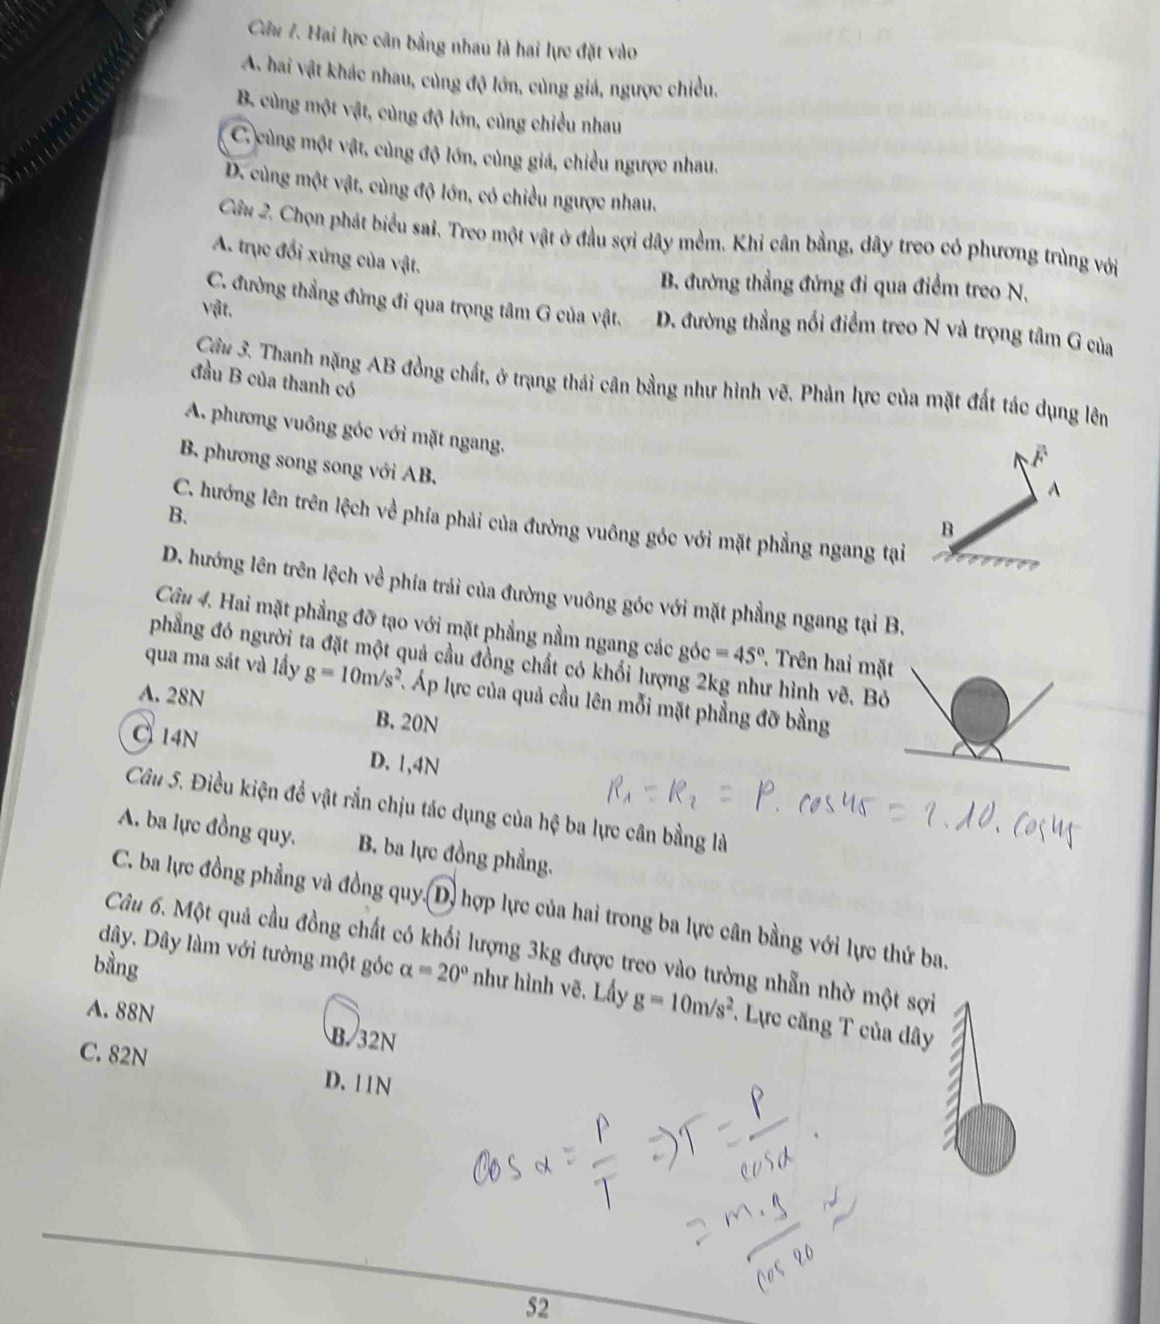 Câu 1. Hai lực cân bằng nhau là hai lực đặt vào
A. hai vật khác nhau, cùng độ lớn, cùng giá, ngược chiều.
B. cùng một vật, cùng độ lớn, cùng chiều nhau
C. cùng một vật, cùng độ lớn, cùng giá, chiều ngược nhau.
D. cùng một vật, cùng độ lớn, có chiều ngược nhau.
Câu 2. Chọn phát biểu sai. Treo một vật ở đầu sợi dây mềm. Khi cân bằng, dây treo có phương trùng với
A. trục đối xứng của vật. B. đường thẳng đứng đi qua điểm treo N.
C. đường thẳng đứng đi qua trọng tâm G của vật. D. đường thẳng nối điểm treo N và trọng tâm G của
vật.
Câu 3. Thanh nặng AB đồng chất, ở trạng thái cân bằng như hình vẽ. Phản lực của mặt đất tác dụng lên
đầu B của thanh có
A. phương vuông góc với mặt ngang.
B. phương song song với AB.
C. hướng lên trên lệch về phía phải của đường vuông góc với mặt phẳng ngang tại
B.
D. hướng lên trên lệch về phía trái của đường vuông góc với mặt phẳng ngang tại B.
F⃗
A
B
Câu 4. Hai mặt phẳng đỡ tạo với mặt phẳng nằm ngang các góc = 45°. Trên hai mặt
phẳng đó người ta đặt một quả cầu đồng chất có khối lượng 2kg như hình vẽ. Bỏ
qua ma sát và lấy g = 10m/s². Áp lực của quả cầu lên mỗi mặt phẳng đỡ bằng
A. 28N B. 20N
C. 14N D. 1,4N
R₁ = R₂ = P. cos45 = 2.10. cos45
Câu 5. Điều kiện để vật rắn chịu tác dụng của hệ ba lực cân bằng là
A. ba lực đồng quy. B. ba lực đồng phẳng.
C. ba lực đồng phẳng và đồng quy. D. hợp lực của hai trong ba lực cân bằng với lực thứ ba.
Câu 6. Một quả cầu đồng chất có khối lượng 3kg được treo vào tường nhẵn nhờ một sợi
dây. Dây làm với tường một góc α = 20° như hình vẽ. Lấy g = 10m/s². Lực căng T của dây
bằng
A. 88N B. 32N
C. 82N D. 11N
cos α = P/T ⇒ T = P/cosα.
= m.g/cos 20 ≈
52